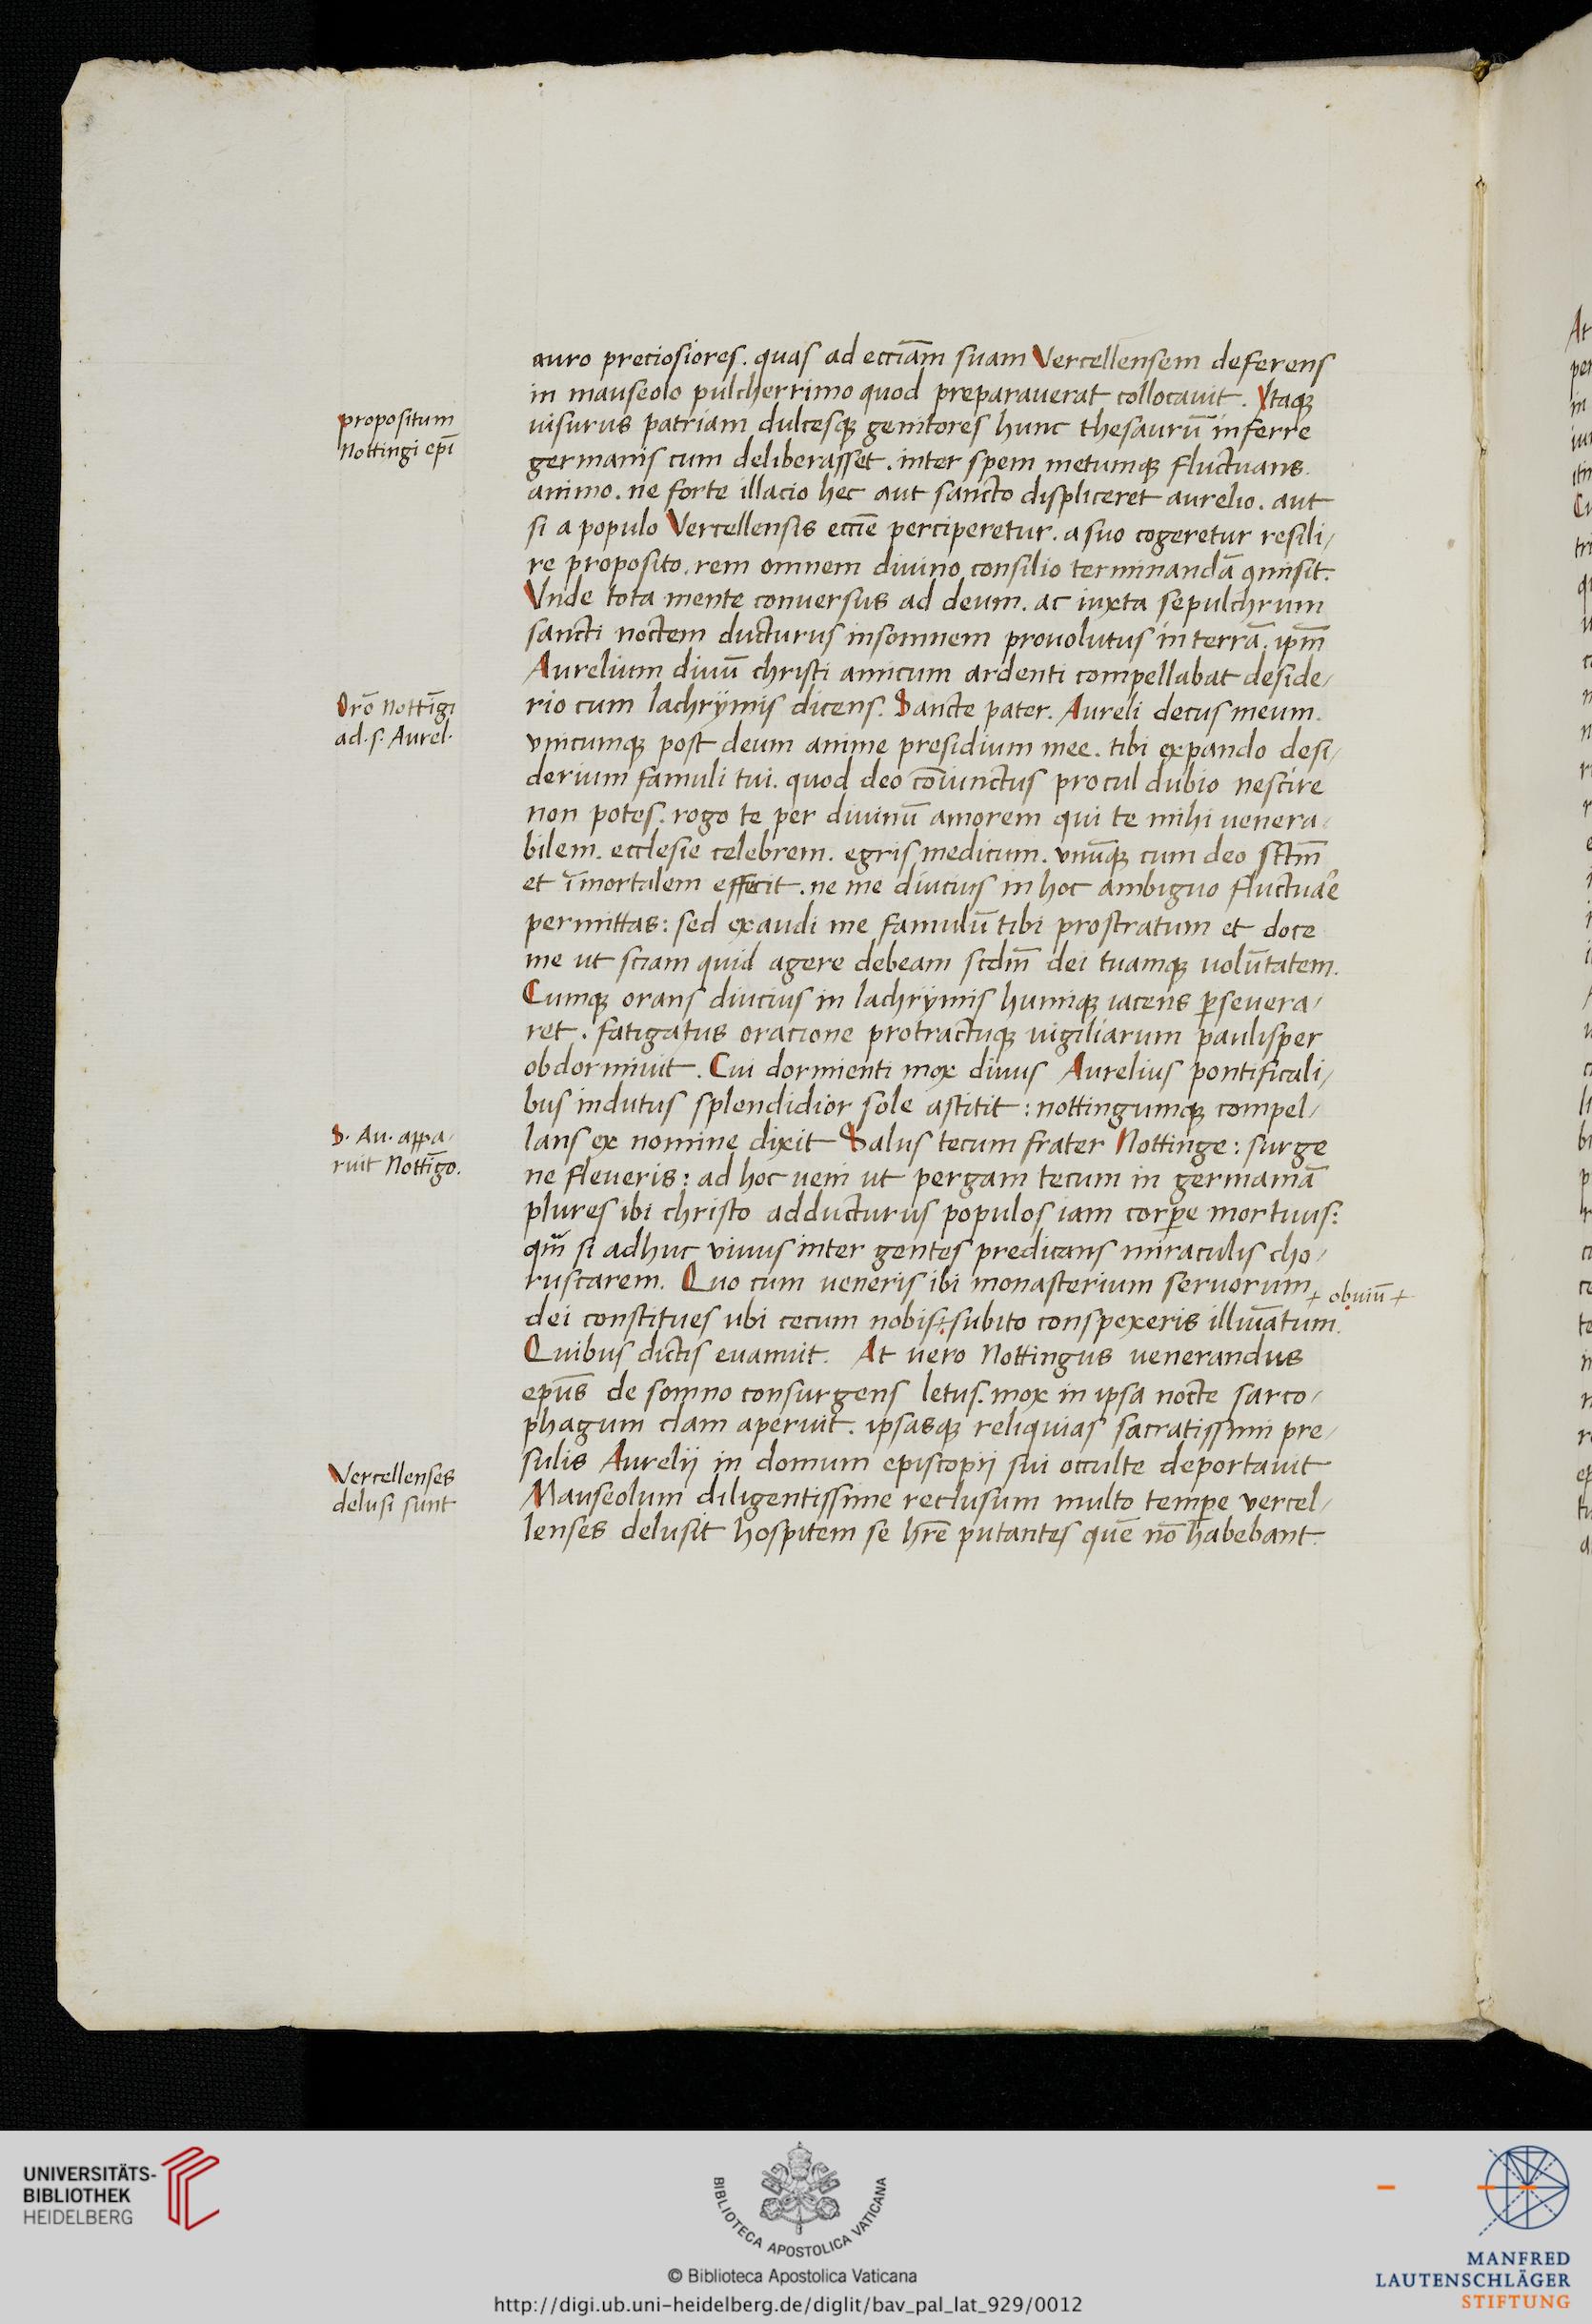 auro preciosiores. quas ad eccľiam suam Vercellensem deferens
in mauseolo pulcherrimo quod preparauerat collocauit. Itaqꝫ
propositum
Nottingi epĩ
uisurus patriam dulcesqꝫ genitores hunc thesaurũ inferre
germanis cum deliberasset. inter spem metumqꝫ fluctuans
animo. ne forte illacio hec aut sancto displiceret aurelio. aut
si a populo Vercellensis eccľie perciperetur. a suo cogeretur resili/
re proposito. rem omnem diuino consilio terminandã ꝯmisit.
Vnde tota mente conuersus ad deum. ac iuxta sepulchrum
sancti noctem ducturus insomnem prouolutus in terrã. ip̃m
Aurelium diuũ christi amicum ardenti compellabat deside/
Orõ Nottĩgi
ad. s. Aurel.
rio cum lachrÿmis dicens. Sancte pater. Aureli decus meum.
vnicumqꝫ post deum anime presidium mee. tibi expando desi/
derium famuli tui. quod deo cõiunctus procul dubio nescire
non potes. rogo te per diuinũ amorem qui te mihi venera/
bilem. ecclesie celebrem. egris medicum. vnũqꝫ cum deo sc̃tm
et ĩmortalem effecit. ne me diucius in hoc ambiguo fluctuare
permittas: sed exaudi me famulũ tibi prostratum et doce
me ut sciam quid agere debeam scd̃m dei tuamqꝫ volũtatem.
Cumqꝫ orans diucius in lachrÿmis humiqꝫ iacens ꝑseuera/
ret. fatigatus oracione protractuqꝫ uigiliarum paulisper
obdormiuit. Cui dormienti mox diuus Aurelius pontificali/
bus indutus splendidior sole astitit: nottingumqꝫ compel/
S. Au. appa/
ruit Nottĩgo.
lans ex nomine dixit Salus tecum frater Nottinge: surge
ne fleueris: ad hoc veni ut pergam tecum in germaniã
plures ibi christo adducturus populos iam corꝑe mortuus:
qm̃ si adhuc viuus inter gentes predicans miraculis cho/
ruscarem. Quo cum veneris ibi monasterium seruorum
+ obuiũ +
dei constitues ubi cecum nobis + subito conspexeris illuĩatum.
Quibus dictis euanuit. At uero Nottingus venerandus
epũs de somno consurgens letus. mox in ipsa nocte sarco/
phagum clam aperuit. ipsasqꝫ reliquias sacratissimi pre/
sulis Aurelij in domum episcopij sui occulte deportauit
Vercellenses
delusi sunt
Mauseolum diligentissime reclusum multo temꝑe vercel/
lenses delusit hospitem se hr̃e putantes quẽ nõ habebant.
UNIVERSITÄTS-
BIBLIOTHEK
HEIDELBERG
BIBLIOTECA APOSTOLICA VATICANA
© Biblioteca Apostolica Vaticana
http://digi.ub.uni-heidelberg.de/diglit/bav_pal_lat_929/0012
MANFRED
LAUTENSCHLÄGER
STIFTUNG